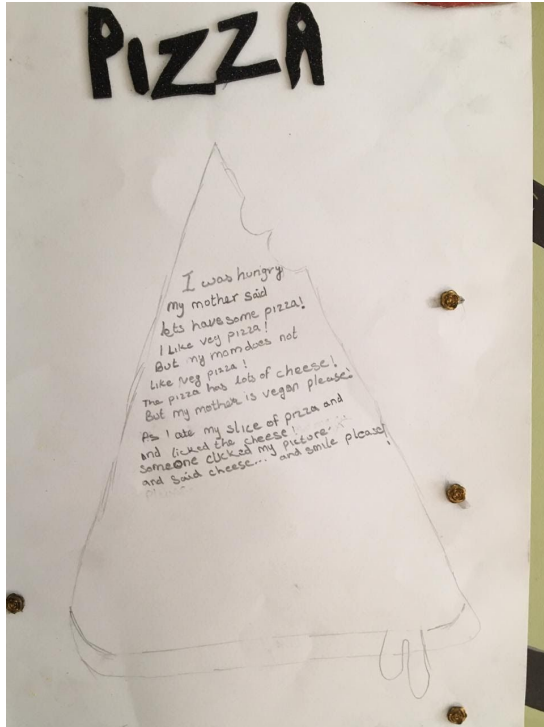 PIZZA
I was hungry
my mother said
lets have some pizza!
I Like veg pizza!
But my mom does not
Like veg pizza!
The pizza has lots of cheese!
But my mother is vegan please!
As I ate my slice of pizza and
and licked the cheese!
someone clicked my picture.
and said cheese... and smile please!